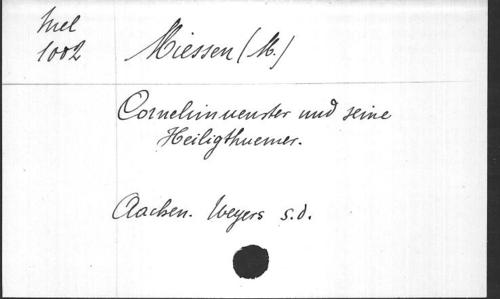 Mel
1002
Miessen (M.)
Cornelimuenster und seine
Heiligthuemer.
Aachen. Weyers s.d.